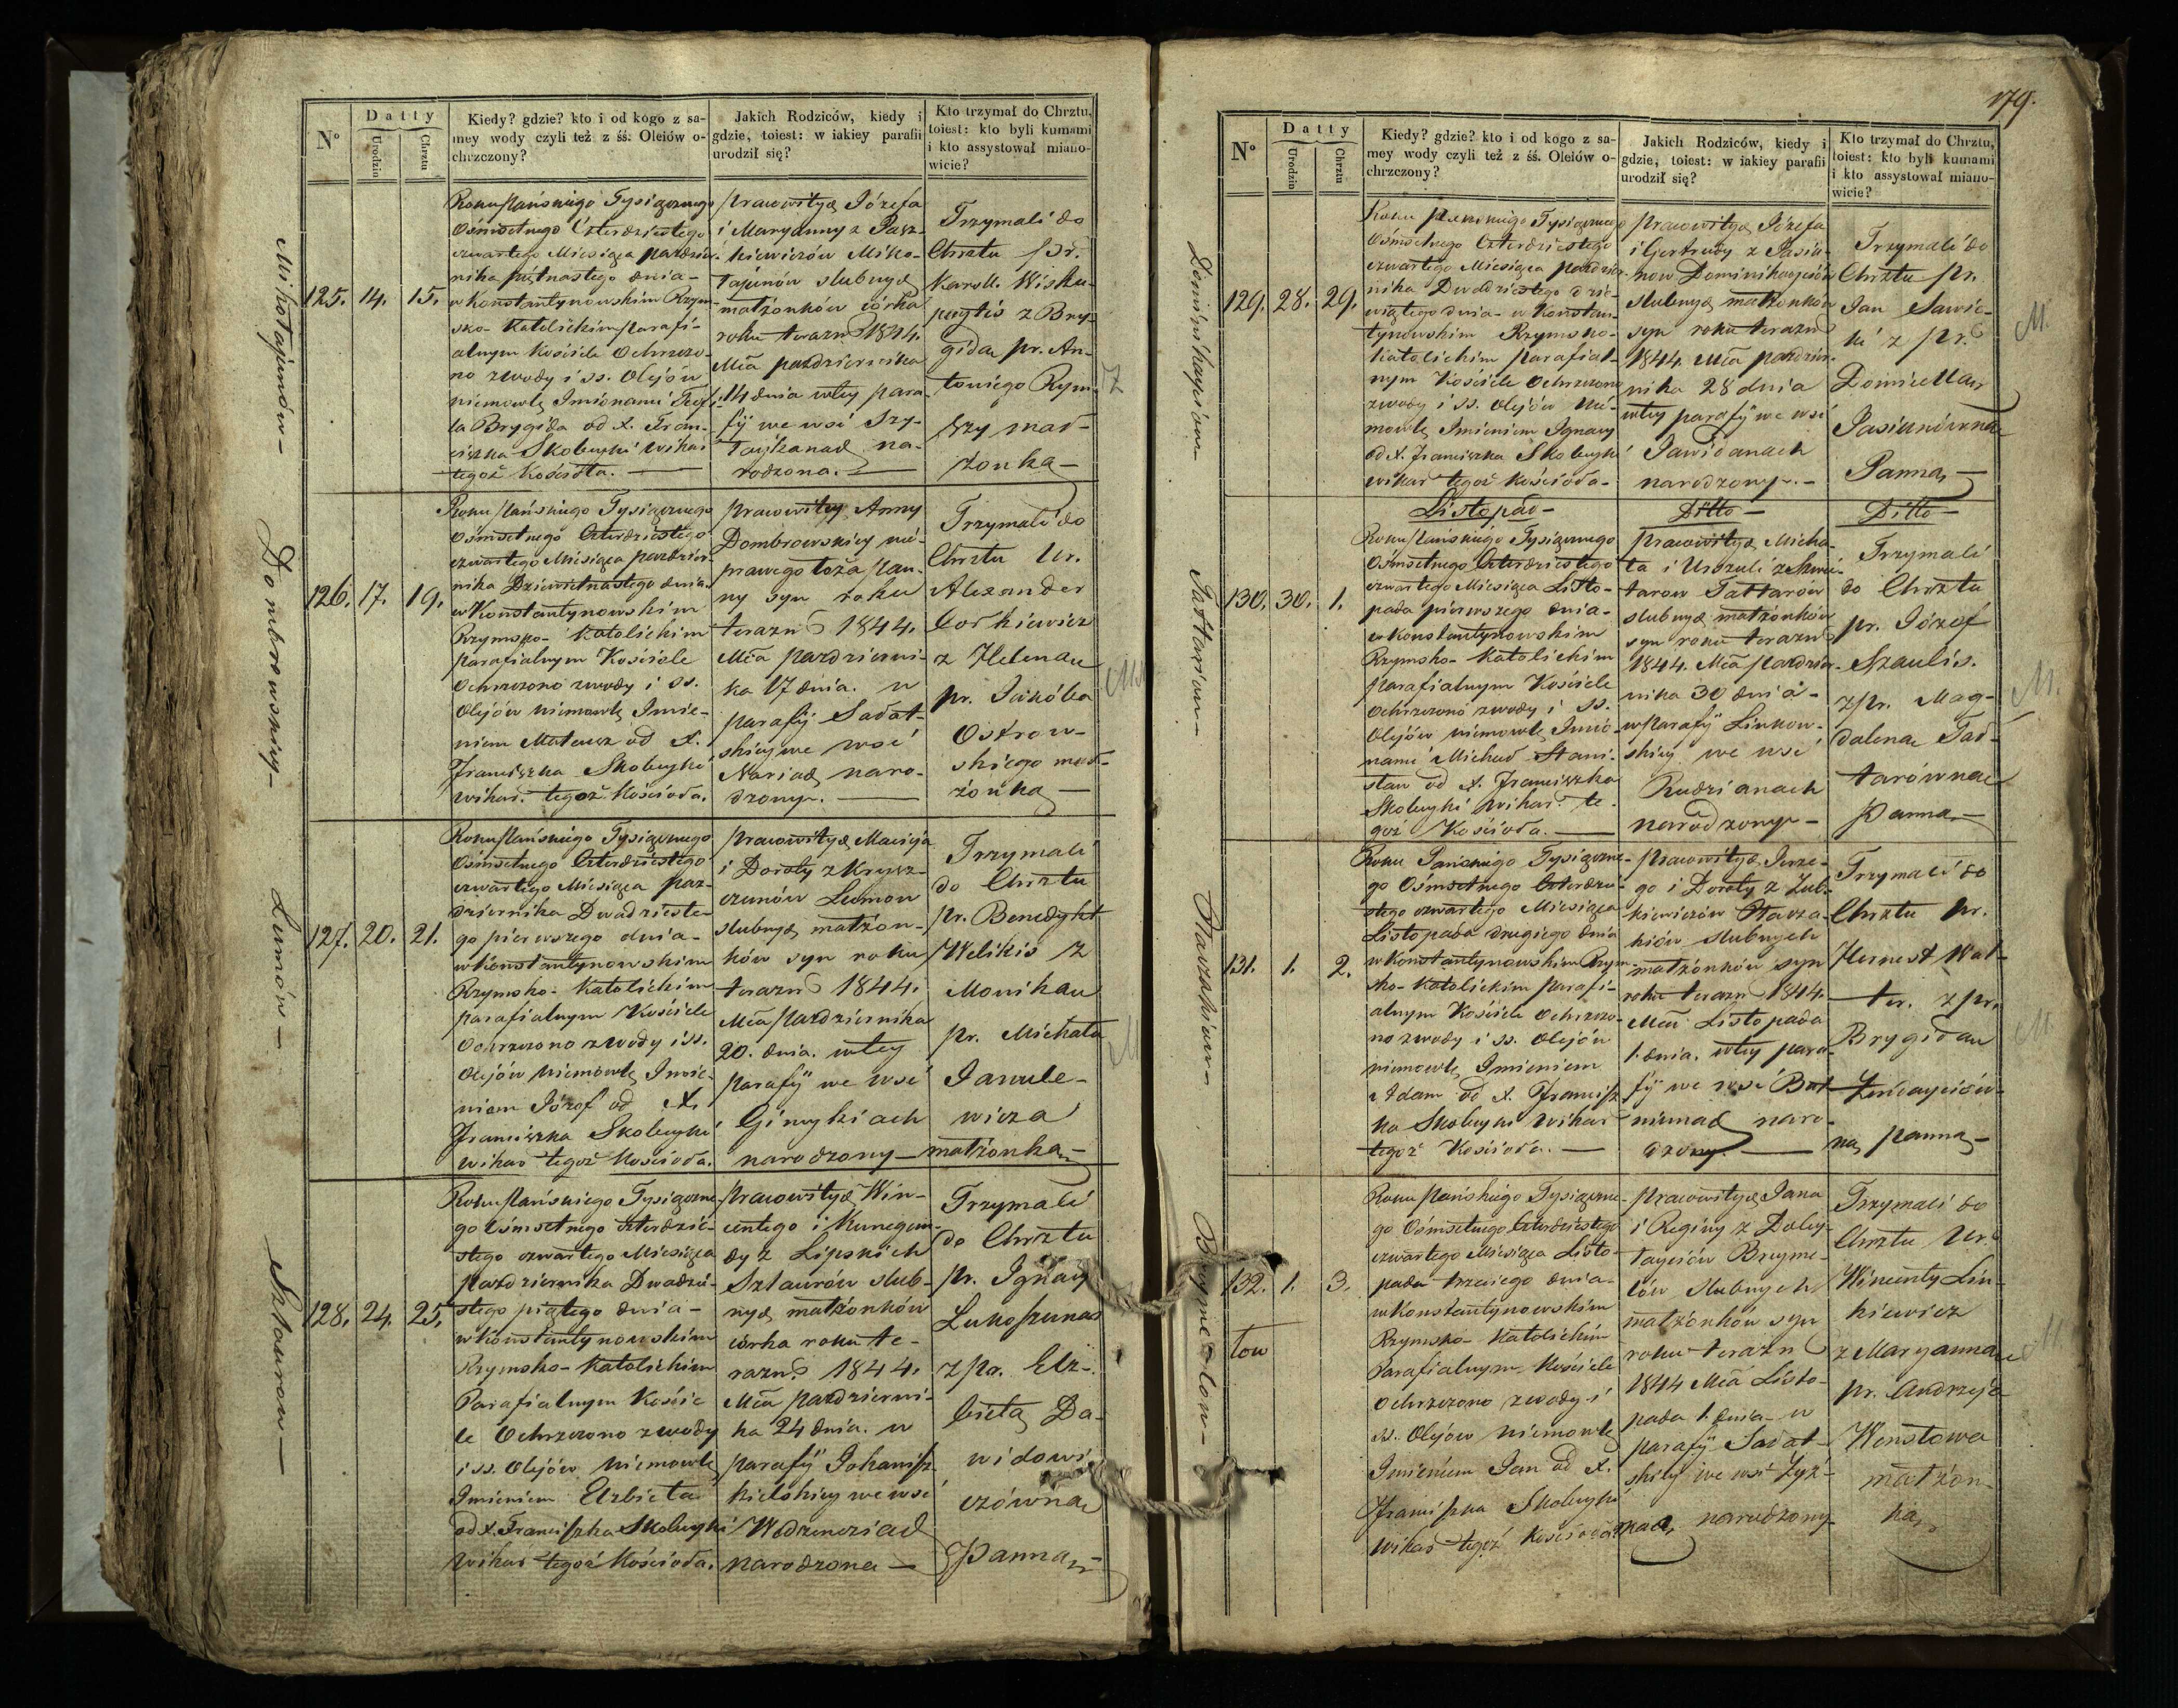 179.
N°
Datty
Urodzin
Chrztu
Kiedy? gdzie? kto i od kogo z sa-
mey wody czyli też z śś. Oleiów o-
chrzczony?
Jakich Rodziców, kiedy i
gdzie, toiest: w iakiey parafii
urodził się?
Kto trzymał do Chrztu,
toiest: kto byli kumami
i kto assystował miano-
wicie?
Mikołajunów—
125.
14.
15.
Roku Pańskiego Tysiącznego
Ośmsetnego Czterdziestego
czwartego Miesiąca Paździer-
nika piętnastego dnia—
w Konstantynowskim Rzym-
sko-Katolickim Parafi-
alnym Kościele Ochrzczo-
no z wody i ss. Olejów
niemowlę Imionami Teofi-
la Brygida od X. Fran-
ciszka Skobeyki Wikar.
tegoż Kościoła.—
Prawowitych Józefa
i Maryanny z Pasz-
kiewiczów Miko-
łajunów slubnych
małżonków córka
roku terazn 1844.
Mca października
14 dnia w tey para-
fij we wsi
na-
rodzona.—
Trzymali do
Chrztu pr.
Karoll Wisku-
z Bry-
gidą pr. An-
toniego Rym-
mał-
żonką—
Z
Dombrowskiey—
126.
17.
19.
Roku Pańskiego Tysiącznego
Ośmsetnego Czterdziestego
czwartego Miesiąca paździer-
nika Dziewiętnastego dnia
w Konstantynowskim
Rzymsko-Katolickim
Parafialnym Kościele
Ochrzczono z wody i ss.
Olejów niemowlę Imie-
niem Mateusz od X.
Franciszka Skobeyki
Wikar. tegoż Kościoła.
Prawowitey Anny
Dombrowskiey nie-
prawego łoża pan-
ny syn roku
terazn 1844.
Mca październi-
ka 17 dnia. w
parafij Sałat-
skiey we wsi
Nariad naro-
dzony.—
Trzymali do
Chrztu Ur.
Alexander
z Heleną
pr. Jakóba
Ostrow-
skiego mał-
żonką—
M
Leimów—
127.
20.
21.
Roku Pańskiego Tysiącznego
Ośmsetnego Czterdziestego
czwartego Miesiąca paź-
dziernika Dwudzieste-
go pierwszego dnia—
w Konstantynowskim
Rzymsko-Katolickim
parafialnym Kościele
Ochrzczono z wody i ss.
Olejów niemowlę Imie-
niem Józef od X.
Franciszka Skobeyki
Wikar tegoż Kościoła.
Prawowitych Macieja
i Doroty z Krysz-
czunów Leimow
slubnych małżon-
ków syn roku
terazn 1844.
Mca października
20. dnia. w tey
parafij we wsi
narodzony—
Trzymali
do Chrztu
pr. Benedykt
Welikis z
Moniką
pr. Michała
Janule-
wicza
małżonką—
M
Szlaurow—
128.
24.
25.
Roku Pańskiego Tysiączne-
go Ośmsetnego Czterdzie-
stego czwartego Miesiąca
Października Dwudzie-
stego piątego dnia—
w Konstantynowskim
Rzymsko-Katolickim
Parafialnym Koście-
le Ochrzczono z wody
i ss. Olejów Niemowlę
Imieniem Elzbieta
od X. Franciszka Skobeyki
Wikar tegoż Kościoła.
Prawowitych Win-
centego i Kunegun-
dy z Lipskich
Szlaurów slub-
nych małżonków
córka roku te-
razn. 1844.
Mca październi-
ka 24 dnia. w
parafij Johanisz-
kielskiey we wsi
narodzona—
Trzymali
do Chrztu
pr. Ignacy
Lukoszunas
z pr. Elż-
bietą Da-
widowi-
czówną
Panną—
N°
Datty
Urodzin
Chrztu
Kiedy? gdzie? kto i od kogo z sa-
mey wody czyli też z śś. Oleiów o-
chrzczony?
Jakich Rodziców, kiedy i
gdzie, toiest: w iakiey parafii
urodził się?
Kto trzymał do Chrztu,
toiest: kto byli kumami
i kto assystował miano-
wicie?
129.
28.
29.
Roku Pańskiego Tysiącznego
Ośmsetnego Czterdziestego
czwartego Miesiąca paździer-
nika Dwudziestego dzie-
wiątego dnia—w Konstan-
tynowskim Rzymsko-
katolickim parafial-
nym Kościele Ochrzczono
z wody i ss. Olejów nie-
mowlę Imieniem Ignacy
od X. Franciszka Skobeyki
wikar tegoż Kościoła—
Prawowitych Józefa
i Gertrudy z Pasiu-
now
slubnych małżonków
syn roku terazn
1844. Mca paździer-
nika 28 dnia
w tey parafij we wsi
Jawidanach
narodzony.—
Trzymali do
Chrztu pr.
Jan Sawic-
ki z pr.
Domicellą
Pasiunówną
Panną—
M.
Listopad—
Ditto—
Ditto—
Tattarow—
130.
30.
1.
Roku Pańskiego Tysiącznego
Ośmsetnego Czterdziestego
czwartego Miesiąca Listo-
pada pierwszego dnia—
w Konstantynowskim
Rzymsko-Katolickim
parafialnym Kościele
Ochrzczono z wody i ss.
Olejów niemowlę Imio-
nami Michał Stani-
sław od X. Franciszka
Skobeyki Wikar. te-
goż Kościoła.—
Prawowitych Micha-
ła i Urszuli
Tattarów
slubnych małżonków
syn roku terazn
1844. Mca Paździer-
nika 30 dnia—
w Parafij Linkow-
skiey we wsi
Rudzianach
narodzony—
Trzymali
do Chrztu
pr. Józef
Szaulis.
z pr. Mag-
daleną Tat-
tarówną
Panną—
M.
131.
1.
2.
Roku Pańskiego Tysiączne-
go Ośmsetnego Czterdzie-
stego czwartego Miesiąca
Listopada drugiego dnia
w Konstantynowskim Rzym-
sko-Katolickim parafi-
alnym Kościele Ochrzczo-
no z wody i ss. Olejów
niemowlę Imieniem
Adam od X. Francisz-
ka Skobeyki Wikar
tegoż Kościoła.—
Prawowitych Jerze-
go i Doroty z
slubnych
małżonków syn
roku terazn 1844.
Mca Listopada
1. dnia. w tey para-
fij we wsi
naro-
dzony.—
Trzymali do
Chrztu Ur.
Hernest Wal-
ter. z pr.
Brygidą
Panną—
M
132.
1.
3.
Roku Pańskiego Tysiączne-
go Ośmsetnego Czterdziestego
czwartego Miesiąca Listo-
pada trzeciego dnia—
w Konstantynowskim
Rzymsko-Katolickim
Parafialnym Kościele
Ochrzczono z wody i
ss. Olejów niemowlę
Imieniem Jan od X.
Franciszka Skobeyki
Wikar tegoż Kościoła
Prawowitych Jana
i Reginy z
slubnych
małżonków syn
roku terazn
1844 Mca Listo-
pada 1. dnia—w
parafij Sałat-
skiey we wsi
narodzony—
Trzymali do
Chrztu Ur.
Wincenty Lin-
kiewicz
z Maryanną
pr. Andrzeja
małżon-
ką
M.